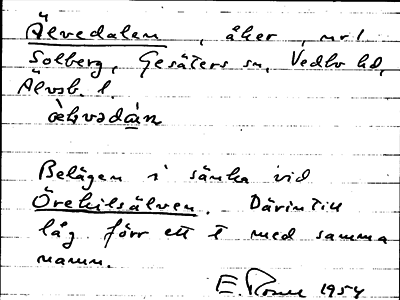 Älvedalen, åker, nr 1
Solberg, Gesäters sn, Vedbo hd,
Älvsb. l.
Belägen i sänka vid
Örekilsälven. Därintill
låg förr ett t med samma
namn.
E. 1954